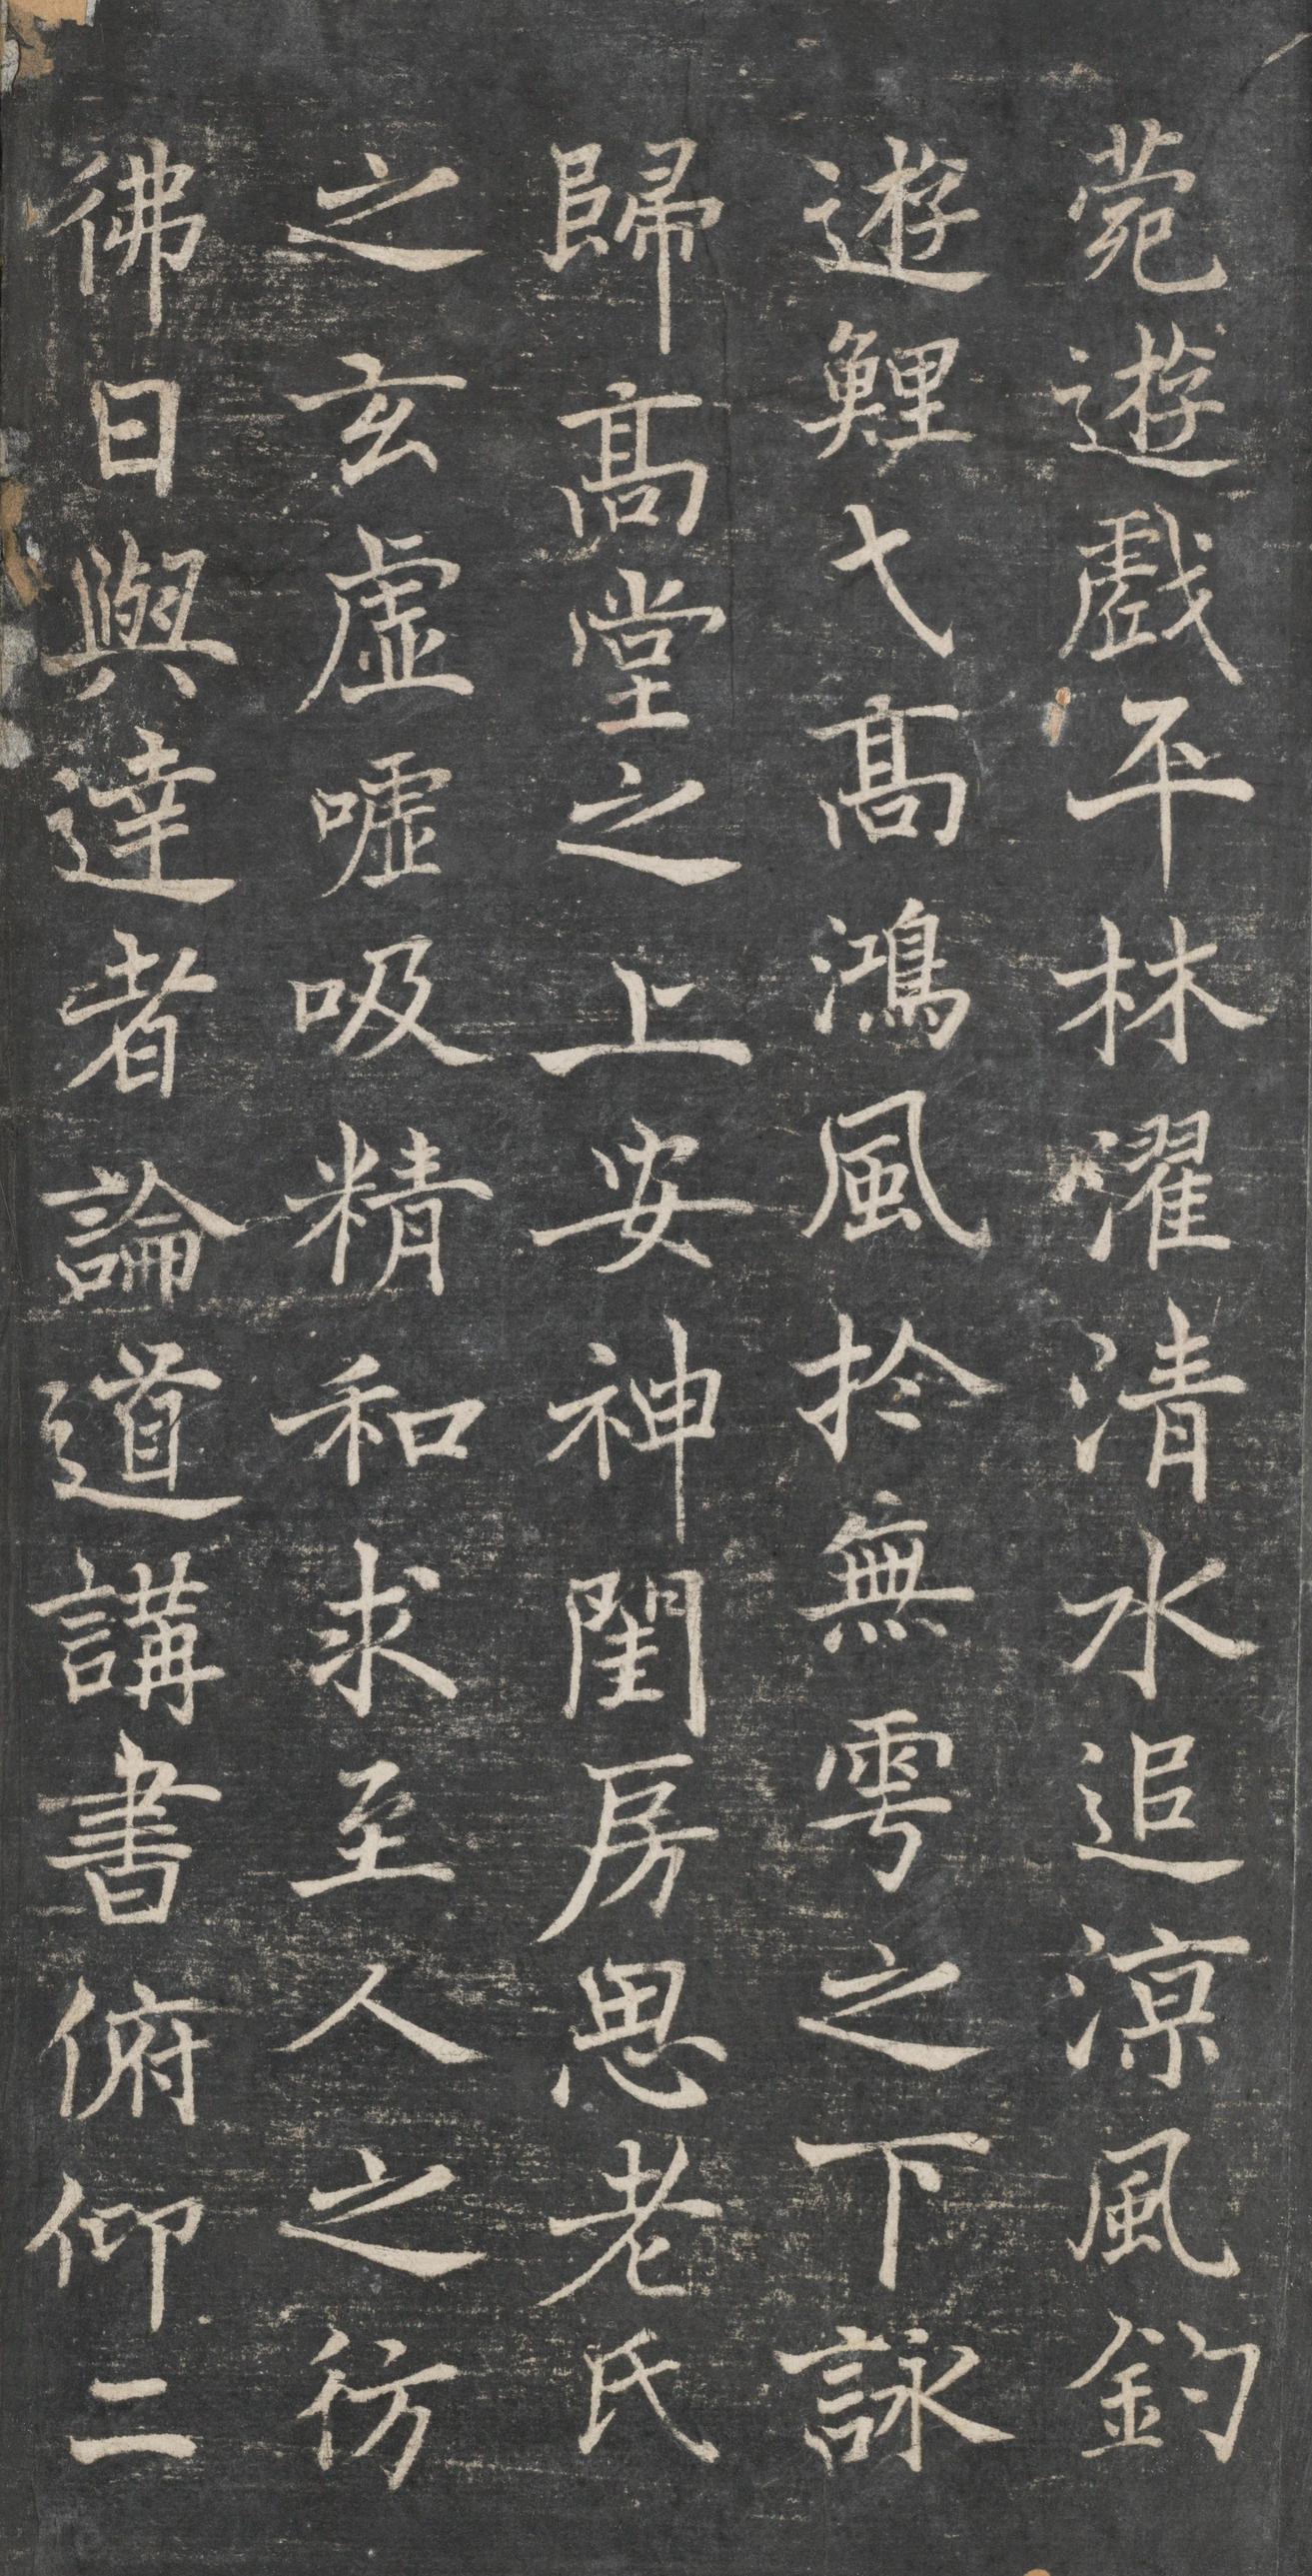 菀遊戲平林濯清水追涼風釣
遊鯉弋高鴻風於無雩之下詠
歸高堂之上安神閨房思老氏
之玄虛嘘吸精和求至人之彷
彿日與達者論道講書俯仰二